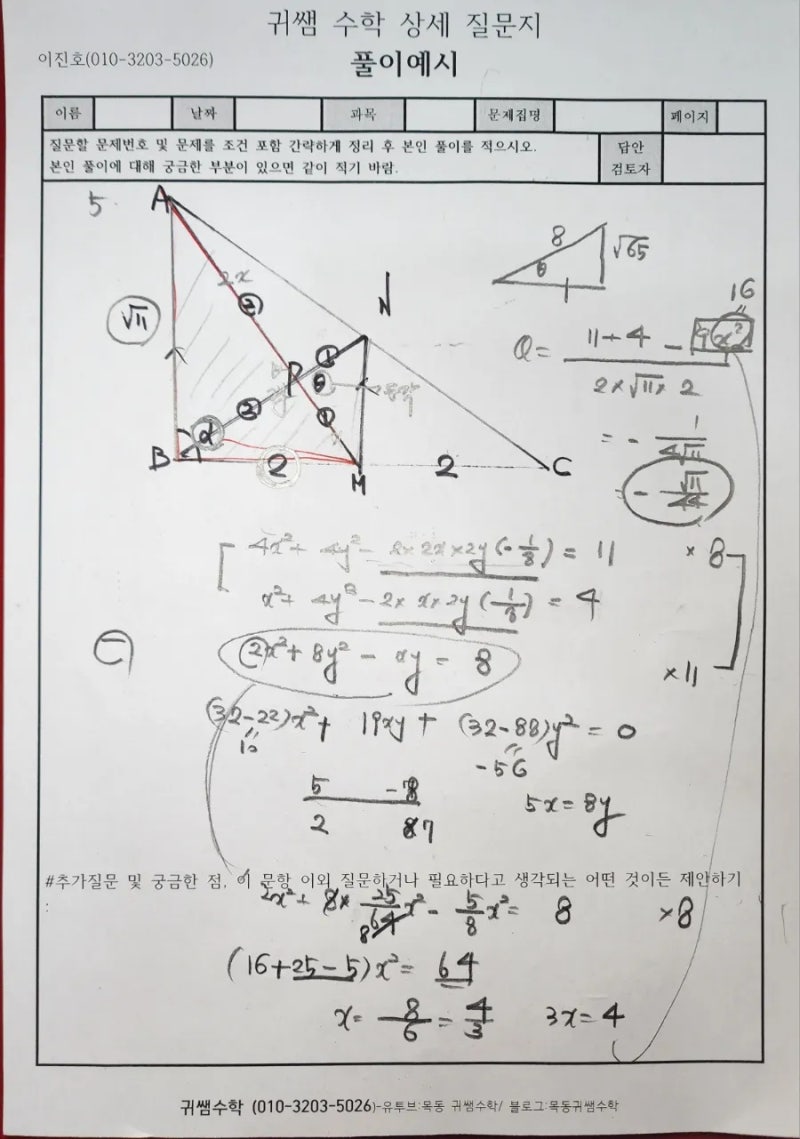 귀쌤 수학 상세 질문지
이진호(010-3203-5026)
풀이예시
이름 날짜 과목 문제집명 페이지
질문할 문제번호 및 문제를 조건 포함 간략하게 정리 후 본인 풀이를 적으시오.
본인 풀이에 대해 궁금한 부분이 있으면 같이 적기 바람.
답안
검토자
5.
A
8
√65
θ
1
2x
②
N
√11
16
①
P
θ
동각
③
①
α
B
2
M
2
C
11+4-9x²
2×√11×2
= -1/4√11
= -√11/44
4x²+4y²-2×2x×2y(-1/8) = 11 ×8
x²+4y²-2×x×2y(1/8) = 4
×11
㊀ 2x²+8y²-xy = 8
(32-22)x²+ 19xy+ (32-88)y² = 0
10
-56
5 -8
5x=8y
2 7
#추가질문 및 궁금한 점, 이 문항 이외 질문하거나 필요하다고 생각되는 어떤 것이든 제안하기
2x²+8×25/64x²-5/8x²= 8 ×8
8
(16+25-5)x²= 64
x= 8/6=4/3 3x=4
귀쌤수학 (010-3203-5026)-유투브:목동 귀쌤수학/ 블로그:목동귀쌤수학